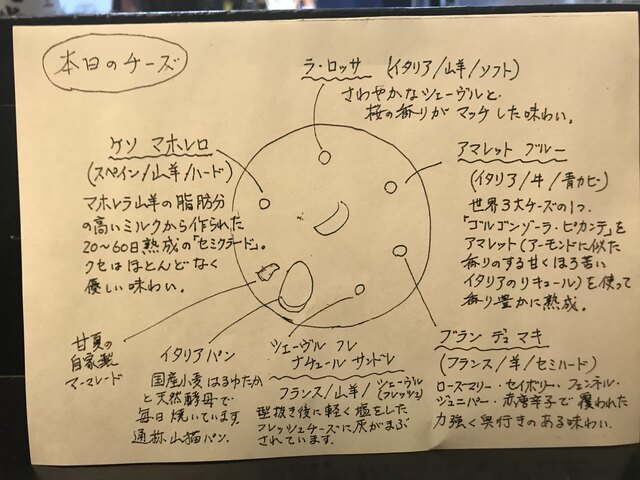 本日のチーズ
ラ・ロッサ (イタリア/山羊/ソフト)
さわやかなシェーヴルと
桜の香りがマッチした味わい。
ケソ マホレロ
(スペイン/山羊/ハード)
マホレラ山羊の脂肪分
の高いミルクから作られた
20〜60日熟成の「セミクラード」。
クセはほとんどなく
優しい味わい。
アマレット ブルー
(イタリア/牛/青カビ)
世界3大チーズの1つ、
「ゴルゴンゾーラ・ピカンテ」を
アマレット(アーモンドに似た
香りのする甘くほろ苦い
イタリアのリキュール)を使って
香り豊かに熟成。
甘夏の
自家製
マーマレード
イタリアパン
国産小麦はるゆたか
と天然酵母で
毎日焼いています。
通称山猫パン。
シェーヴル フレ
ナチュール サンドレ
フランス/山羊/シェーヴル
(フレッシュ)
型抜き後に軽く塩をした
フレッシュチーズに灰がまぶ
されています。
ブラン デュ マキ
(フランス/羊/セミハード)
ローズマリー・セイボリー・フェンネル・
ジュニパー・赤唐辛子で覆われた
力強く奥行きのある味わい。